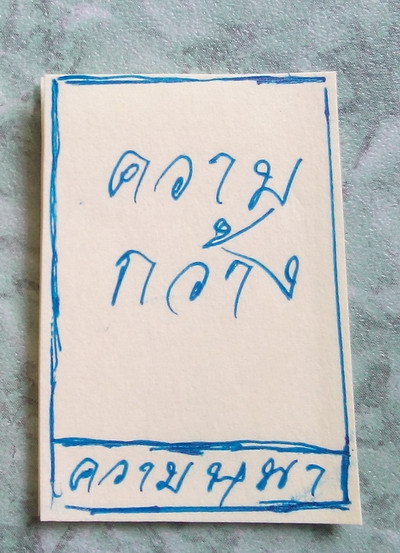 ความ
กว้าง
ความหนา